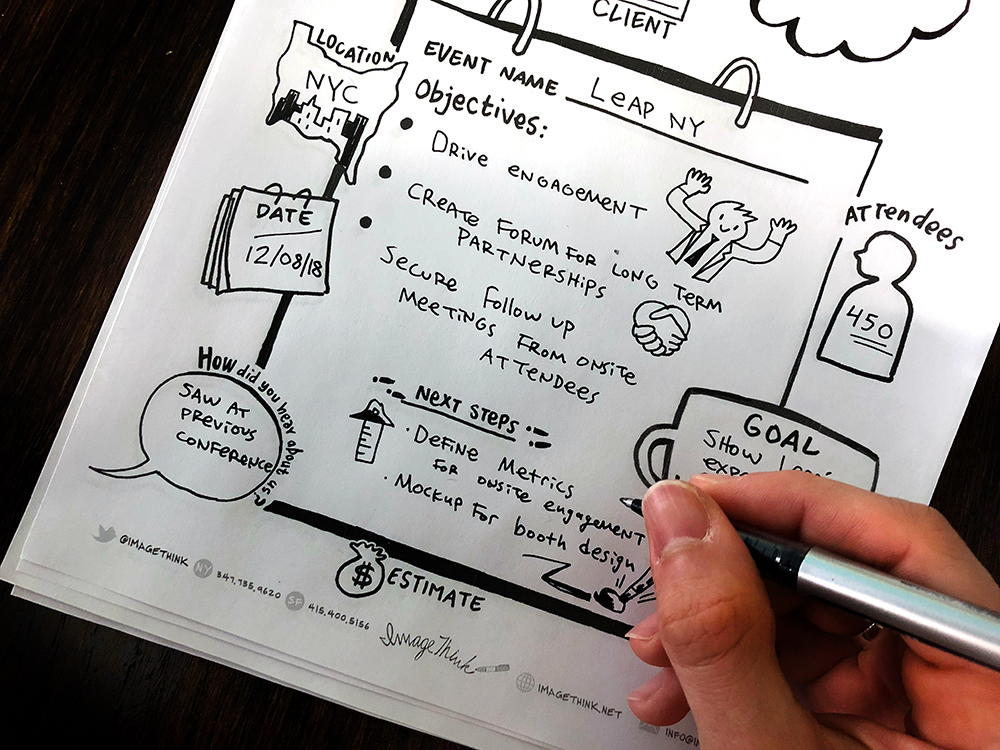 CLIENT
LOCATION
NYC
EVENT NAME LEAP NY
Objectives:
• DRIVE ENGAGEMENT
• CREATE FORUM FOR LONG TERM
PARTNERSHIPS
• SECURE FOLLOW UP
MEETINGS FROM ONSITE
ATTENDEES
DATE
12/08/18
ATTendees
450
How did you hear about us?
SAW AT
PREVIOUS
CONFERENCE
NEXT STEPS
· DEFINE METRICS
FOR ONSITE ENGAGEMENT
· MOCKUP FOR booth design
GOAL
SHOW
$ ESTIMATE
@IMAGETHINK NY 347.735.9620 SF 415.400.5156
ImageThink
IMAGETHINK.NET